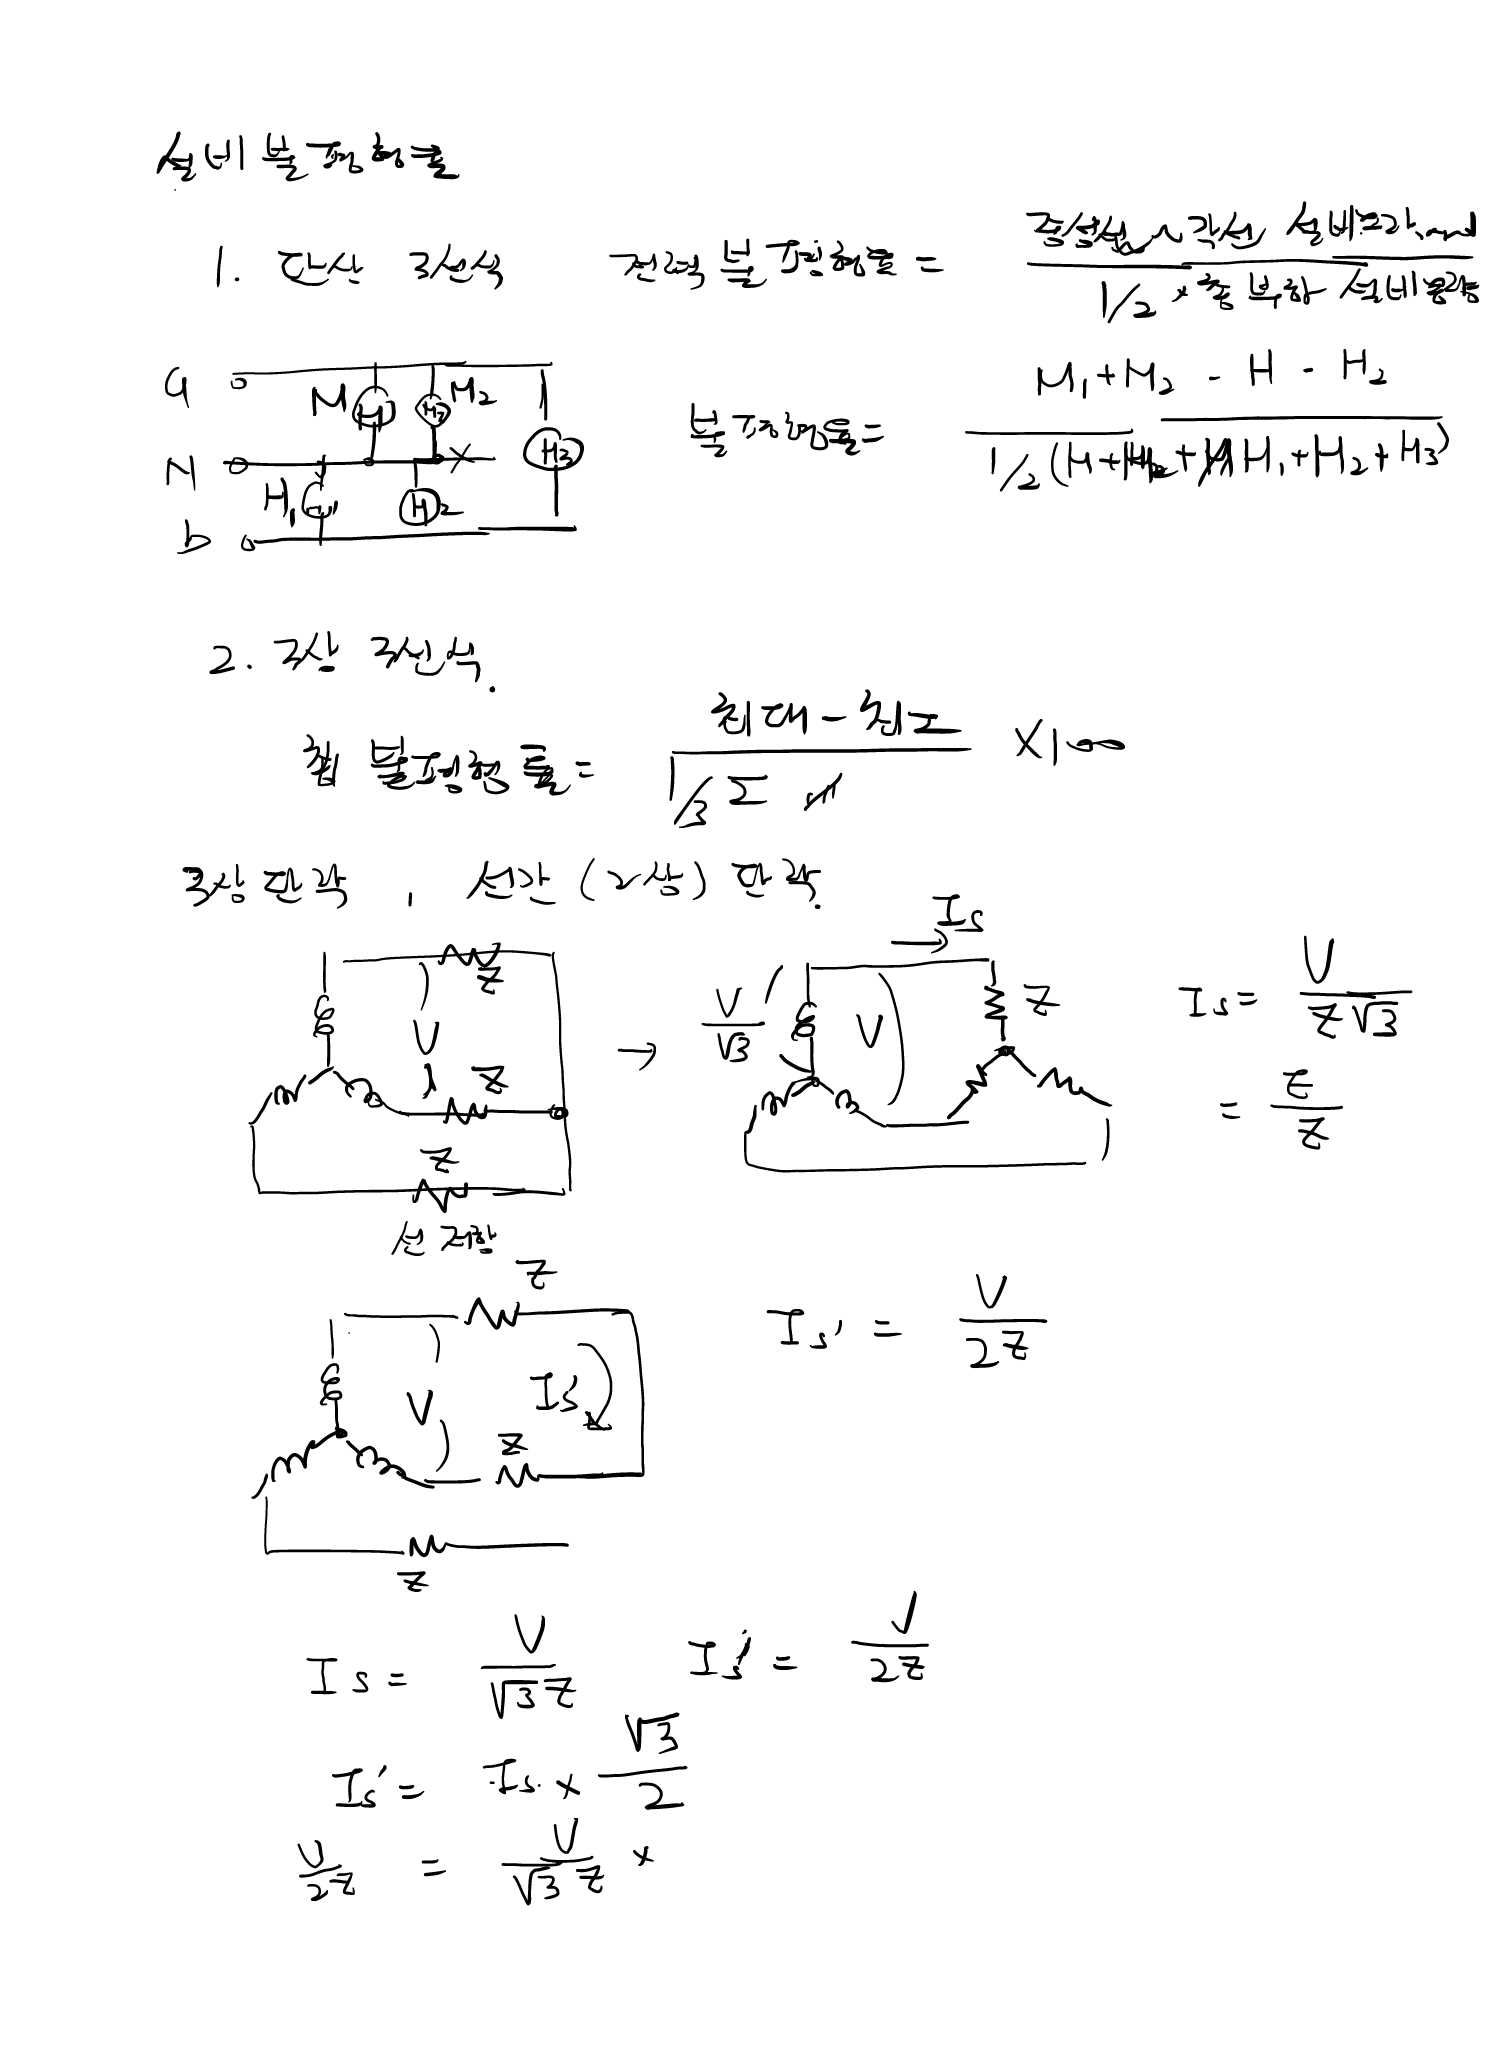 설비불평형률
1. 단상 3선식 전력불평형률 = 중성선 ~ 각선 설비 / 1/2 × 총 부하 설비용량
a
M M1 M2 M2
N
H1 H2 H3
b
불평형률 = M1+M2 - H - H2 / 1/2 (M+M2+H1+H2+H3)
2. 3상 3선식.
불평형률 = 최대 - 최소 / 1/3 Σ 〃 ×100
3상 단락, 선간 (2상) 단락.
Z
V
Z
Z
선 저항
→
Is
V/√3
V
Z
Is = V / Z√3
= E / Z
Z
V
Is'
Z
Z
Is' = V / 2Z
Is = V / √3Z Is' = V / 2Z
Is' = Is × √3 / 2
V / 2Z = V / √3Z ×